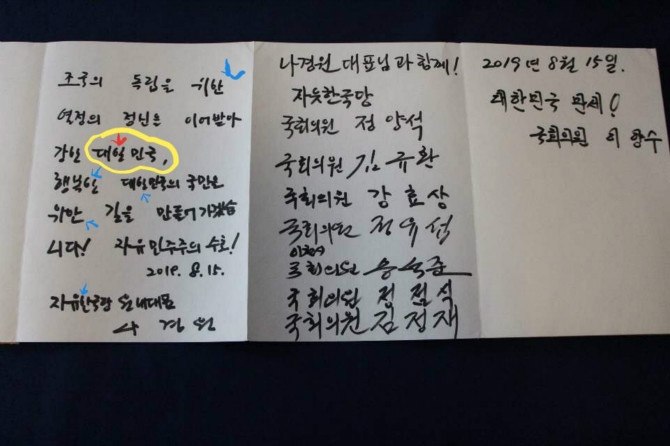 조국의 독립을 위한
열정의 정신을 이어받아
강한 대일민국,
행복한 대한민국의 국민을
위한 길을 만들어 가겠습
니다! 자유민주주의 수호!
2019. 8. 15.
자유한국당 원내대표
나 경 원
나경원 대표님과 함께!
자유한국당
국회의원 정양석
국회의원 김규환
국회의원 강효상
국회의원 정유섭
이천시
국회의원 송석준
국회의원 정점식
국회의원 김정재
2019년 8월 15일.
대한민국 만세!
국회의원 이양수